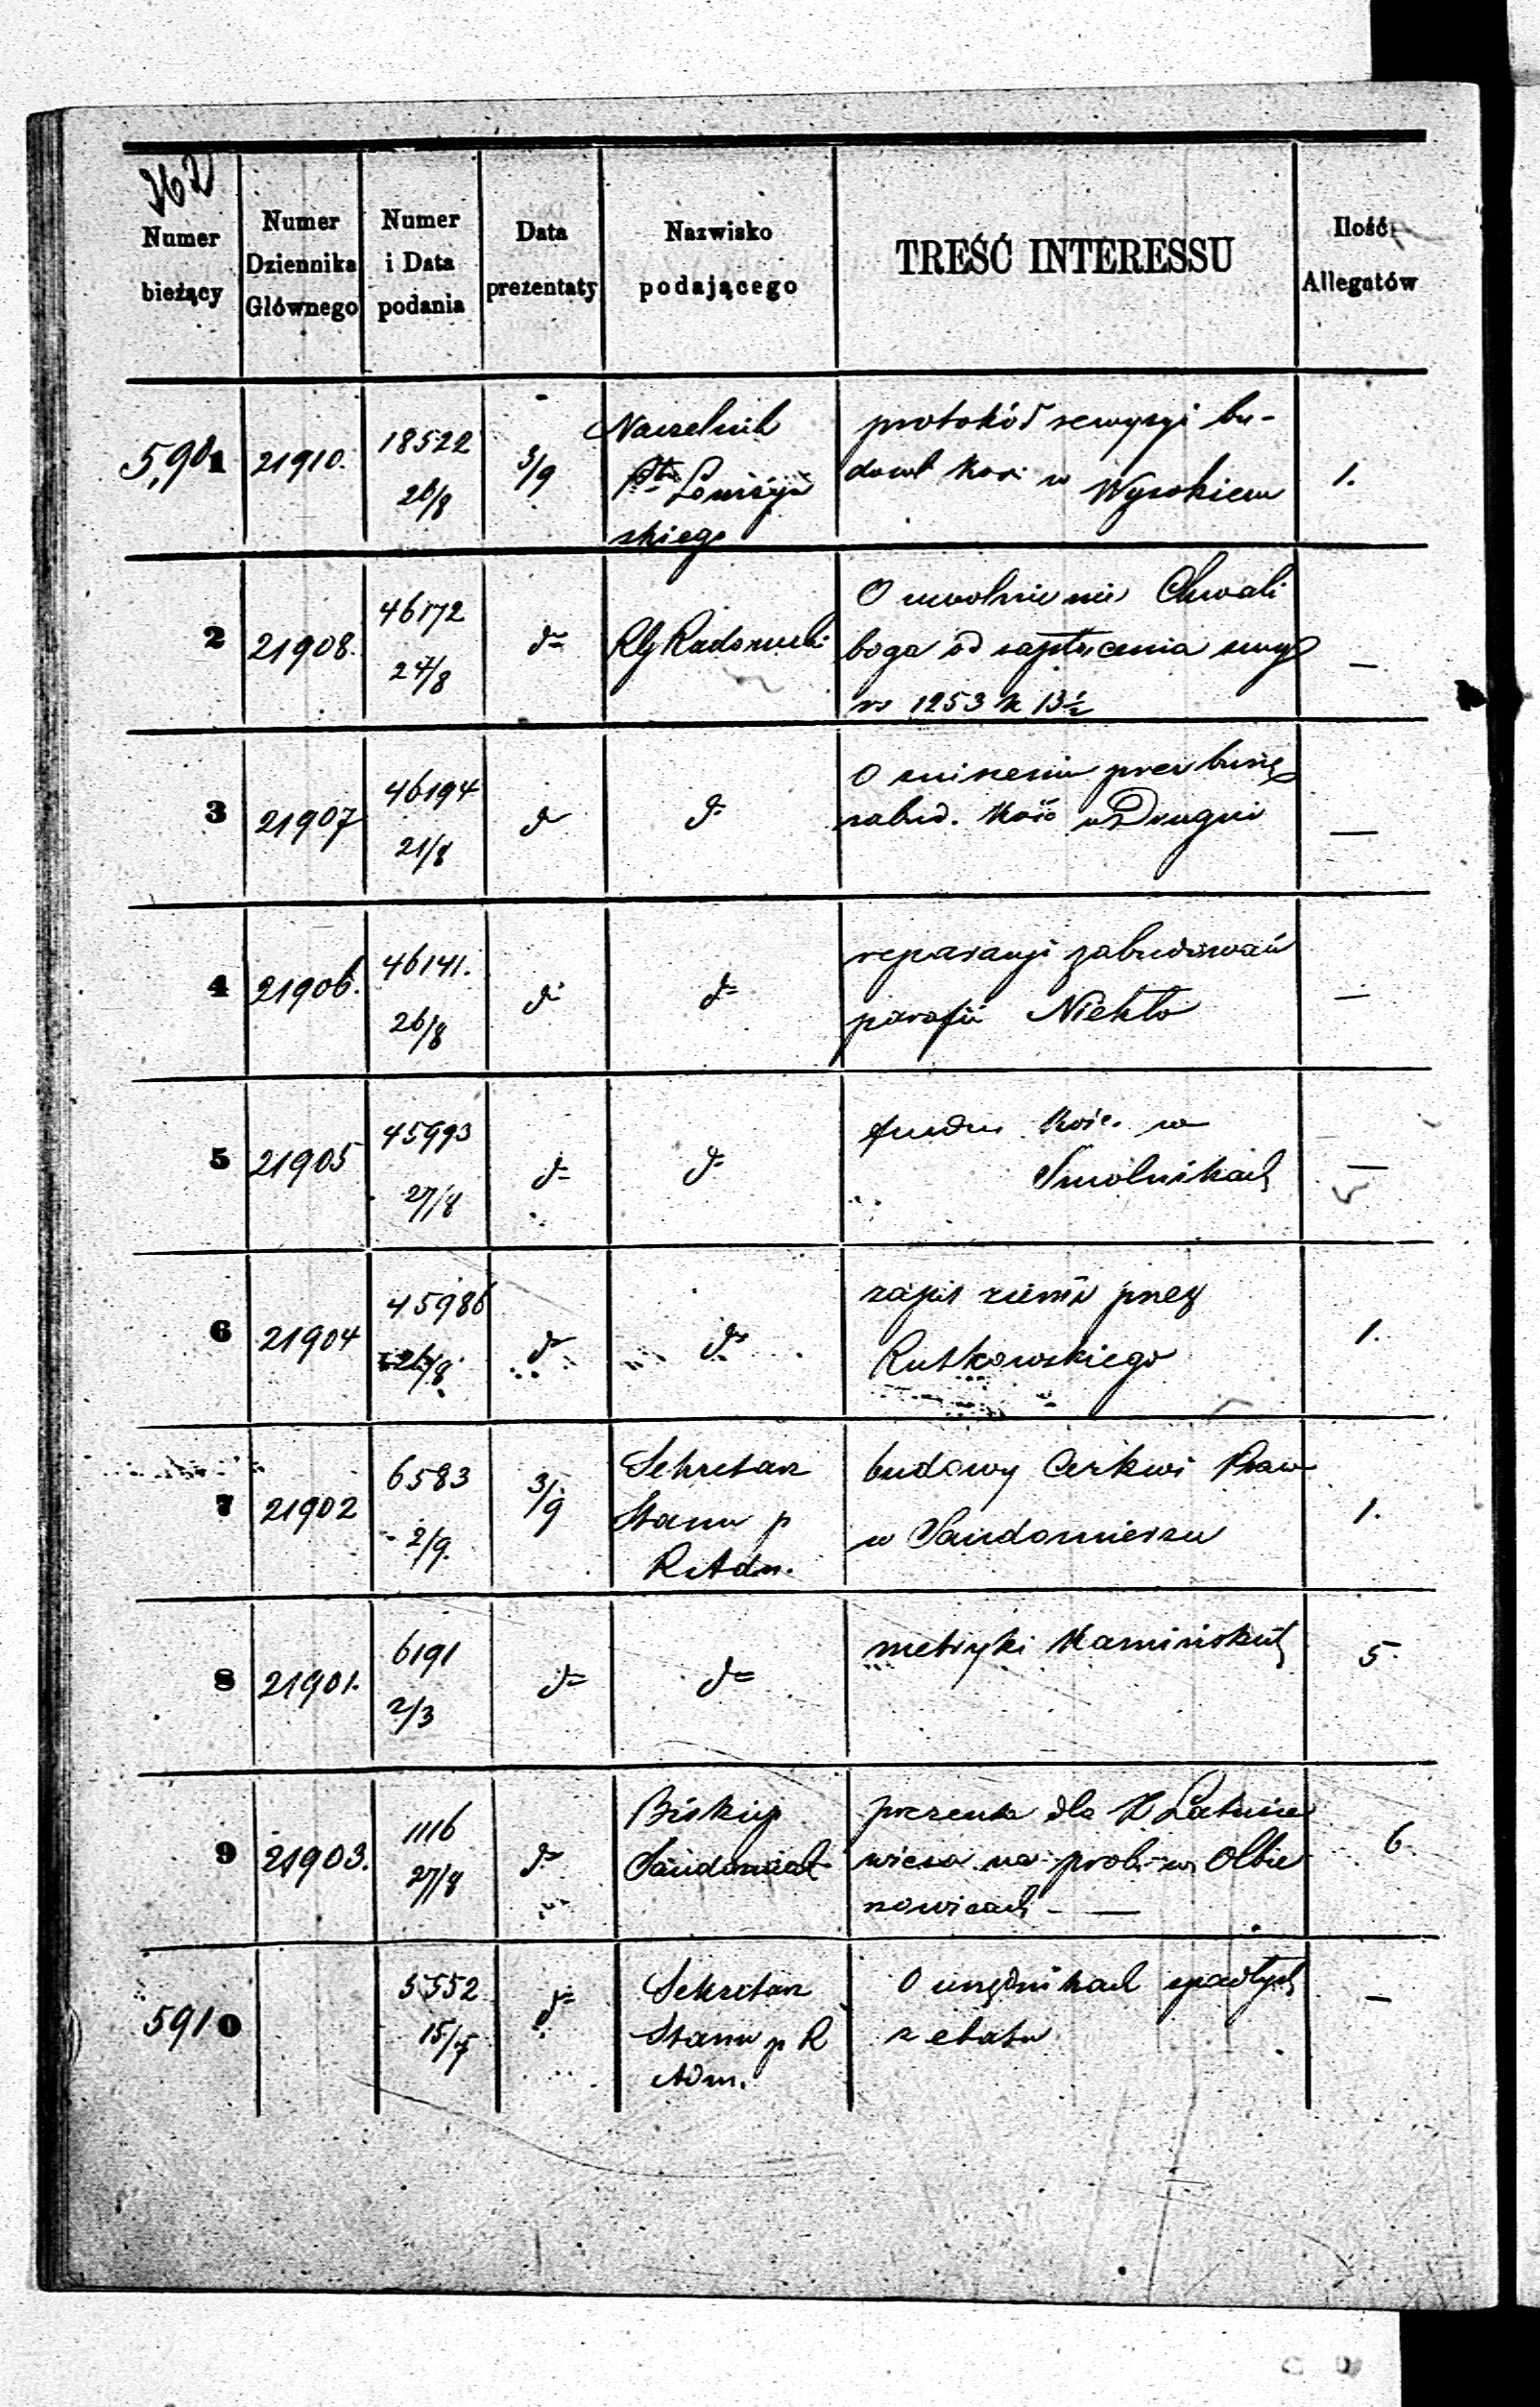 362
Numer bieżący
Numer Dziennika Głównego
Numer i Data podania
Data prezentaty
Nazwisko podającego
TREŚĆ INTERESSU
Ilość Allegatów
5,901 21910. 18522 26/8 3/9
Naczelnik
Ptu Łomżyń
skiego
protokół rewyzyi bu-
dowl Kośc w Wysokiem
1.
2 21908. 46172 27/8 d=
RG Radomski
O uwolnienie Chwali
boga od zapłacenia
rs 1253 k 13½
—
3 21907 46194 21/8 d d=
O zniszczeniu przez burzę
zabud. Kośc w Drugni
—
4 21906. 46141. 26/8 d= d=
reparacyi zabudowań
parafii Niekło
—
5 21905 45993 27/8 d= d=
Kośc. w
Smolnikach
—
6 21904 45986 26/8 d= d=
zapis ziemi przez
Rutkowskiego
1.
7 21902 6583 2/9. 3/9
Sekretarz
Stanu p
R Adm.
budowy Cerkwi Praw
w Sandomierzu
1.
8 21901. 6191 2/3 d= d=
metryki Kamińskich
5.
9 21903. 1116 27/8 d=
Biskup
Sandomiersk
prezenta dla X
wicza na prob. w Olbie
rzowicach —
6
5910 5552 15/7 d=
Sekretarz
Stanu p R
Adm.
O urzędnikach spadłych
z etatu
—